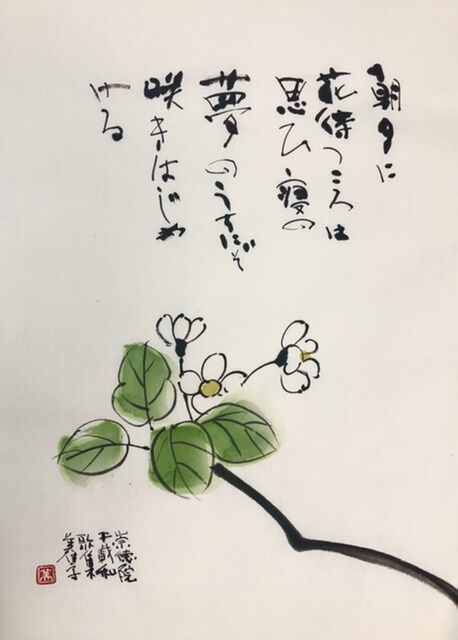 朝夕に
花待つころは
思ひ寝の
夢のうちにぞ
咲きはじめ
ける
崇徳院
千載和
歌集
美佳子